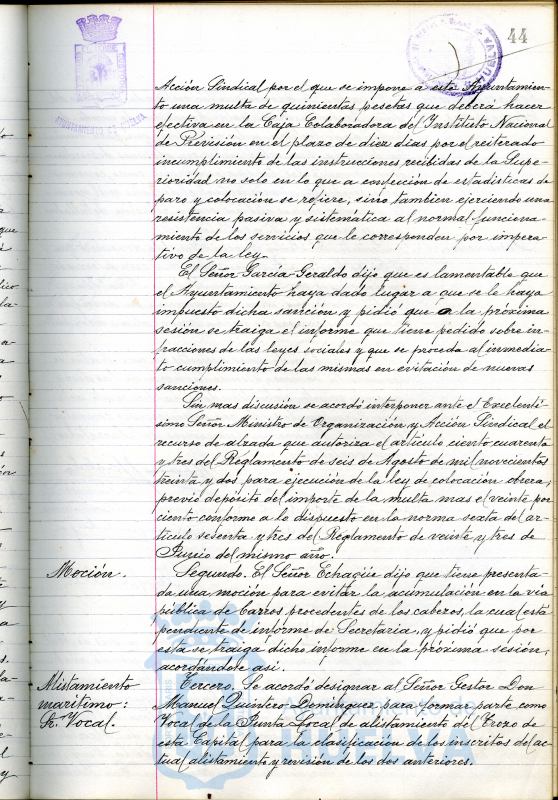 44
AYUNTAMIENTO DE HUELVA
Acción Sindical por el que se impone a este Ayuntamien-
to una multa de quinientas pesetas que deberá hacer
efectiva en la Caja Colaboradora del Instituto Nacional
de Previsión en el plazo de diez días por el reiterado
incumplimiento de las instrucciones recibidas de la Supe-
rioridad no solo en lo que a confección de estadísticas de
paro y colocación se refiere, sino tambien ejerciendo una
resistencia pasiva y sistemática al normal funciona-
miento de los servicios que le corresponden por impera-
tivo de la ley.
El Señor García Geraldo dijo que es lamentable que
el Ayuntamiento haya dado lugar a que se le haya
impuesto dicha sanción y pidió que a la próxima
sesión se traiga el informe que tiene pedido sobre in-
fracciones de las leyes sociales y que se proceda al inmedia-
to cumplimiento de las mismas en evitación de nuevas
sanciones.
Sin mas discusión se acordó interponer ante el Excelentí-
simo Señor Ministro de Organización y Acción Sindical el
recurso de alzada que autoriza el artículo ciento cuarenta
y tres del Reglamento de seis de Agosto de mil novecientos
treinta y dos para ejecución de la ley de colocación obrera,
previo depósito del importe de la multa mas el veinte por
ciento conforme a lo dispuesto en la norma sexta del ar-
tículo sesenta y tres del Reglamento de veinte y tres de
Junio del mismo año.
Moción.
Segundo. El Señor Echagüe dijo que tiene presenta-
da una moción para evitar la acumulación en la vía
pública de barros procedentes de los cabezos, la cual está
pendiente de informe de Secretaria, y pidió que por
esta se traiga dicho informe en la próxima sesión,
acordándose asi.
Alistamiento
marítimo:
Vocal.
Tercero. Se acordó designar al Señor Gestor Don
Manuel Quintero Domínguez para formar parte como
Vocal de la Junta Local de alistamiento del Trozo de
esta Capital para la clasificación de los inscritos del ac-
tual alistamiento y revisión de los dos anteriores.
HUELVA